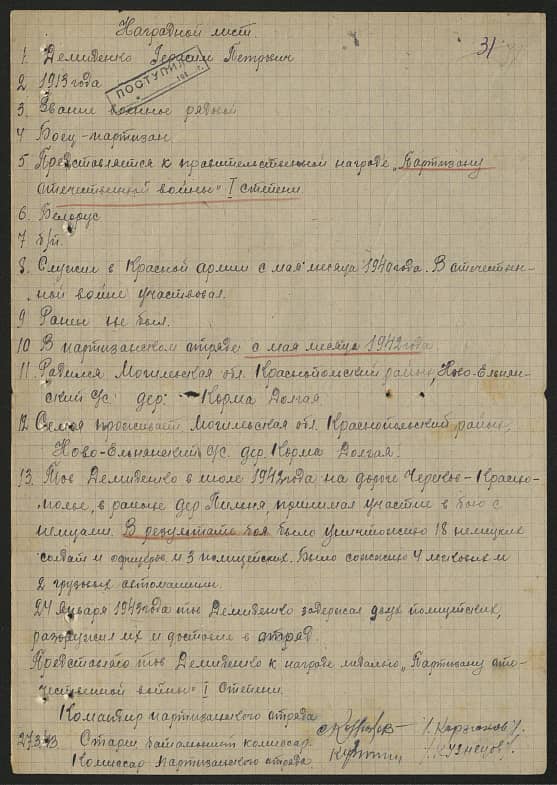 Наградной лист.
31
1. Демиденко Герасим Петрович
ПОСТУПИЛ
2 1913 года
3. Звание военное рядовой
4 Боец-партизан
5 Представляется к правительственной награде „Партизану
отечественной войны" I степени
6. Белорус
7 б/п.
8. Служил в Красной армии с мая месяца 1940 года. В отечествен-
ной войне участвовал.
9 Ранен не был.
10 В партизанском отряде с мая месяца 1942 года.
11 Родился Могилевская обл. Краснопольский район, Ново-Ельнян-
ский с/с. дер. Корма Долгая
12. Семья проживает Могилевская обл. Краснопольский район,
Ново-Ельнянский с/с. дер. Корма Долгая.
13. Тов Демиденко в июле 1942 года на дороге Чериков-Краснo-
полье, в районе дер принимал участие в бою с
немцами. В результате боя было уничтожено 18 немецких
солдат и офицеров и 3 полицейских. Было сожжено 4 легковых и
2 грузовых автомашины.
24 января 1943 года тов Демиденко задержал двух полицейских,
разоружил их и доставил в отряд.
Представляю тов Демиденко к награде медалью „Партизану оте-
чественной войны" I степени.
Командир партизанского отряда
27.3.43. Старш батальонный комиссар
Комиссар партизанского отряда /Кузнецов/.